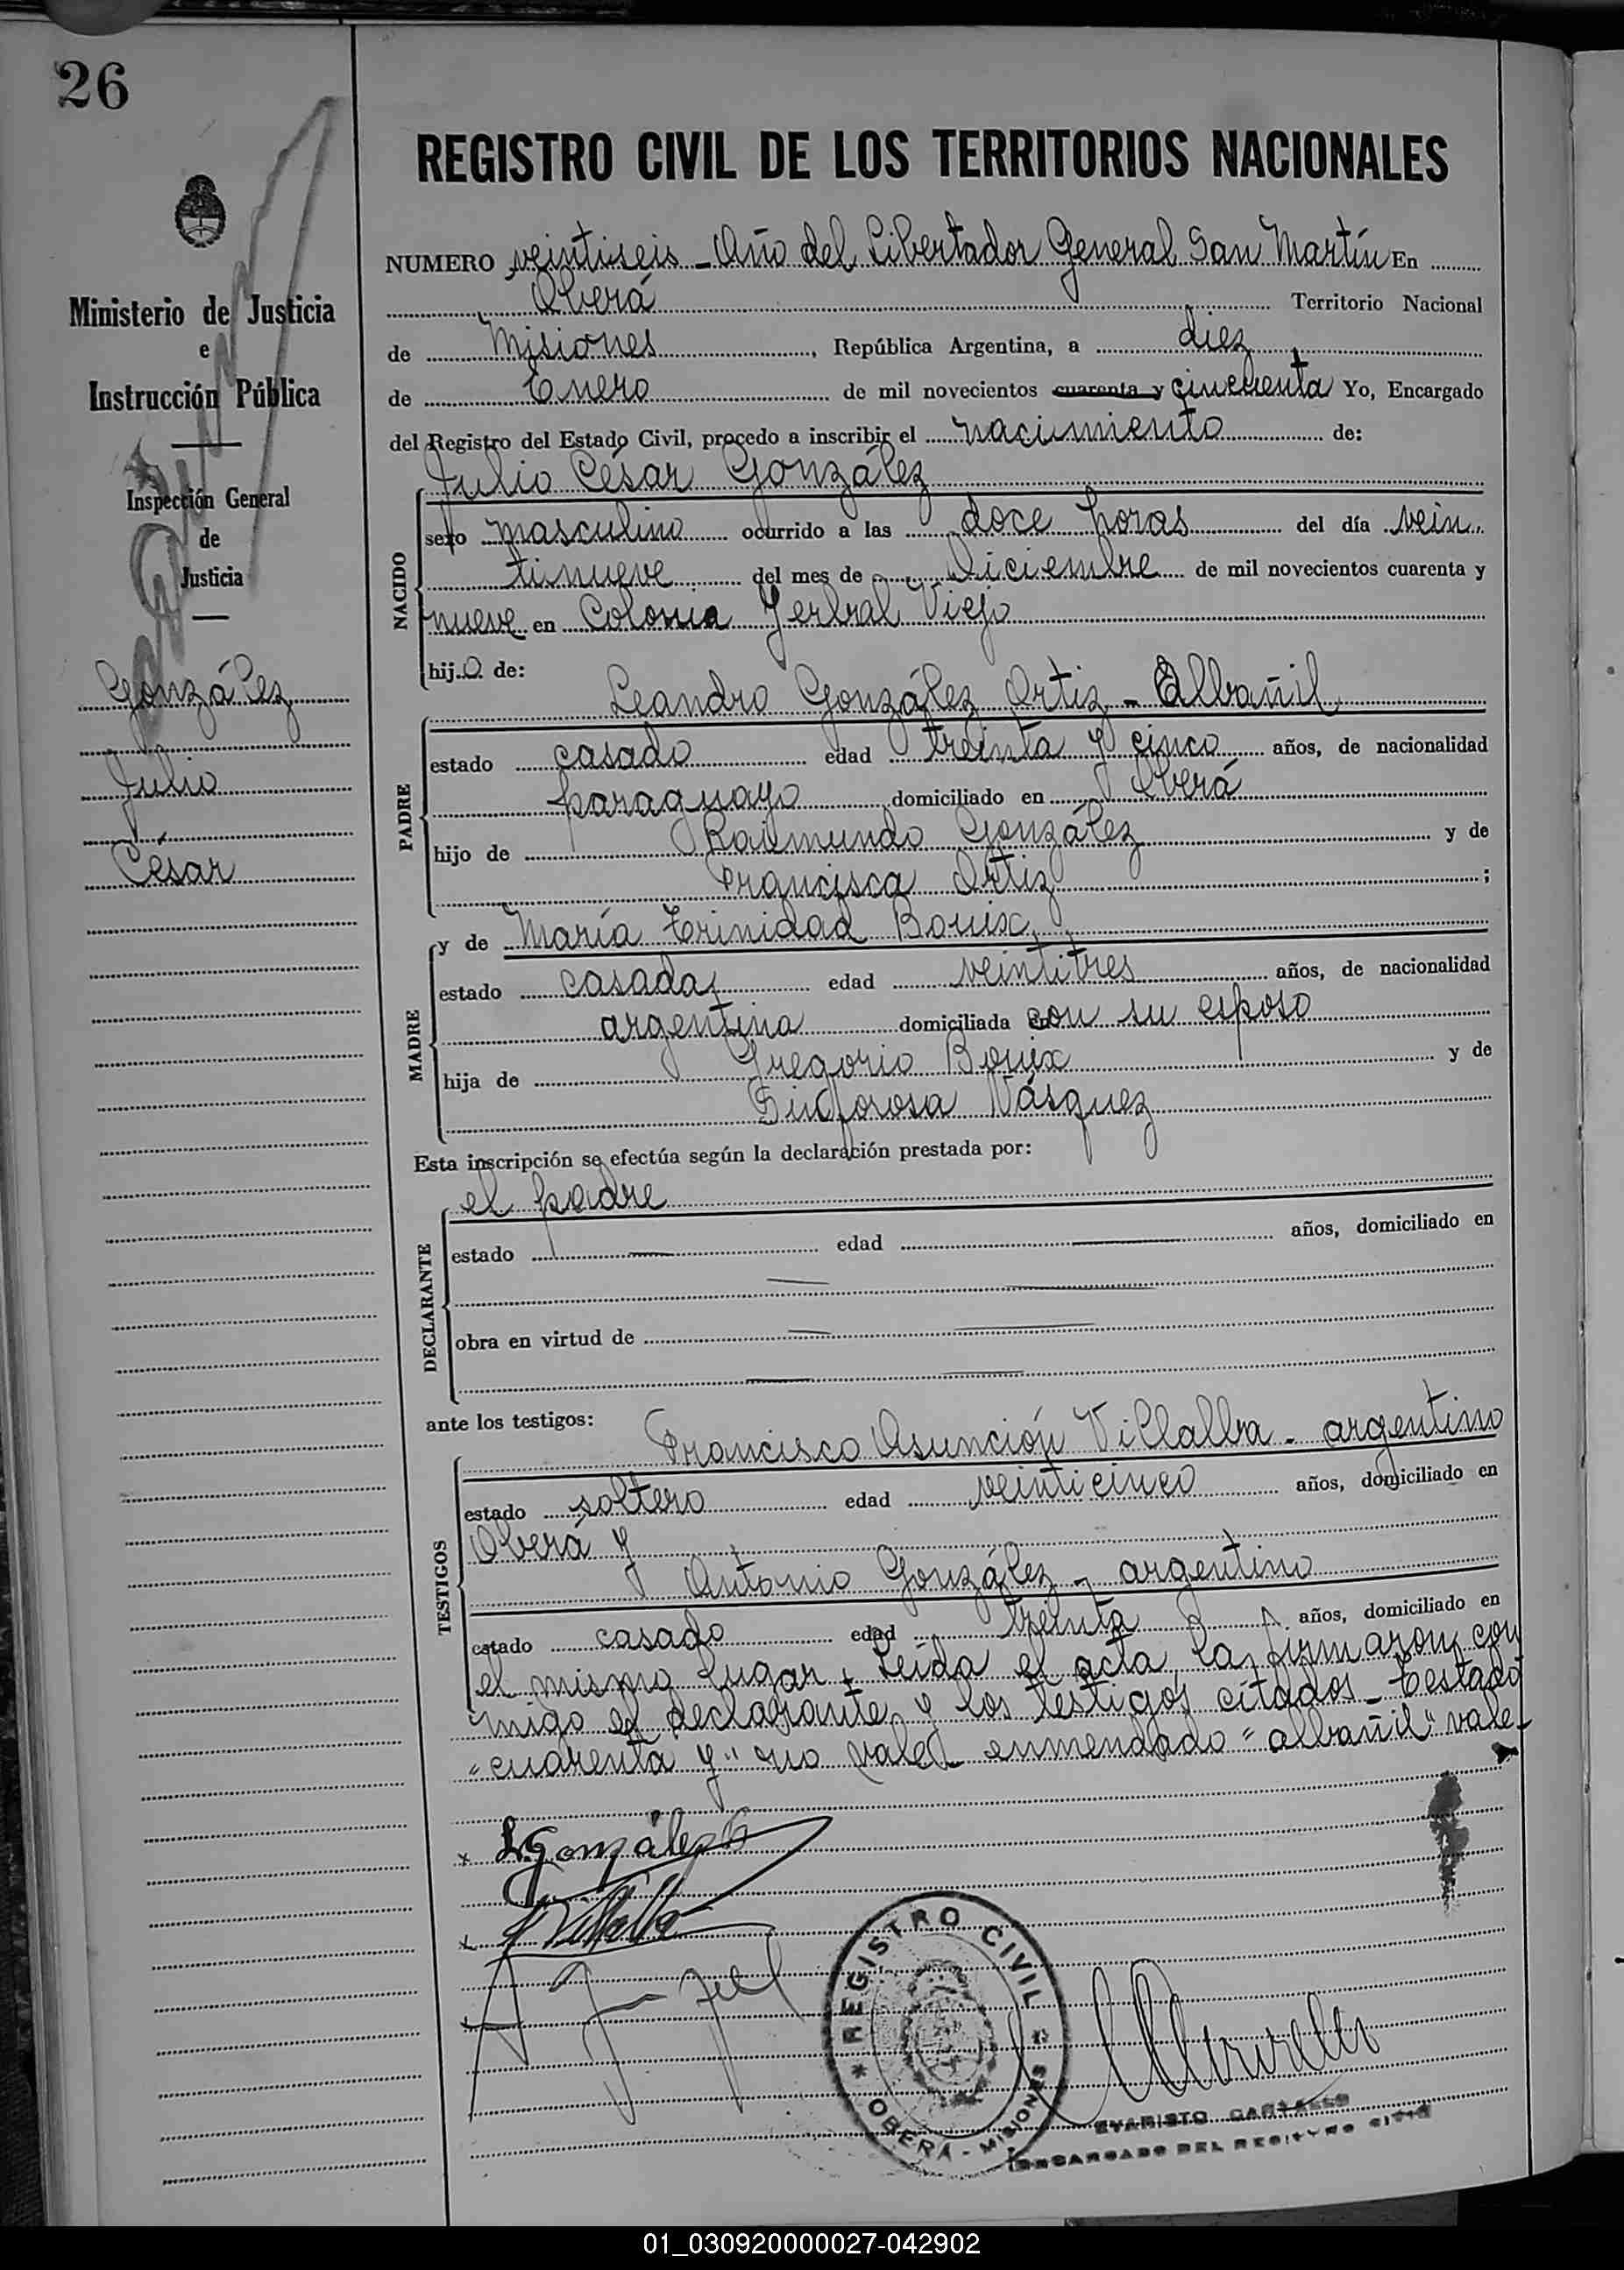 26
REGISTRO CIVIL DE LOS TERRITORIOS NACIONALES
Ministerio de Justicia
e
Instrucción Pública
Inspección General
de
Justicia
González
Julio
César
NUMERO veintiseis - Año del Libertador General San Martín En
Oberá Territorio Nacional
de Misiones, República Argentina, a diez
de Enero de mil novecientos cuarenta y cincuenta Yo, Encargado
del Registro del Estado Civil, procedo a inscribir el nacimiento de:
Julio César González
NACIDO
sexo masculino ocurrido a las doce horas del día vein
tinueve del mes de Diciembre de mil novecientos cuarenta y
nueve en Colonia Yerbal Viejo
hijo de:
Leandro González Ortiz - Albañil
PADRE
estado casado edad treinta y cinco años, de nacionalidad
paraguayo domiciliado en Oberá
hijo de Raimundo González y de
Francisca Ortiz;
MADRE
y de María Trinidad Bouix
estado casada edad veintitres años, de nacionalidad
argentina domiciliada con su esposo
hija de Gregorio Bouix y de
Sinforosa Vásquez
Esta inscripción se efectúa según la declaración prestada por:
el padre
DECLARANTE
estado edad años, domiciliado en
obra en virtud de
ante los testigos:
Francisco Asunción Villalba - argentino
TESTIGOS
estado soltero edad veinticinco años, domiciliado en
Oberá y
Antonio González - argentino
estado casado edad treinta años, domiciliado en
el mismo lugar. Leída el acta la firmaron con
migo el declarante y los testigos citados - Testado
"cuarenta y" no vale enmendado "albañil" vale -
x L González
x F Villalba
REGISTRO CIVIL
OBERÁ - MISIONES
EVARISTO
ENCARGADO DEL REGISTRO CIVIL
01_030920000027-042902